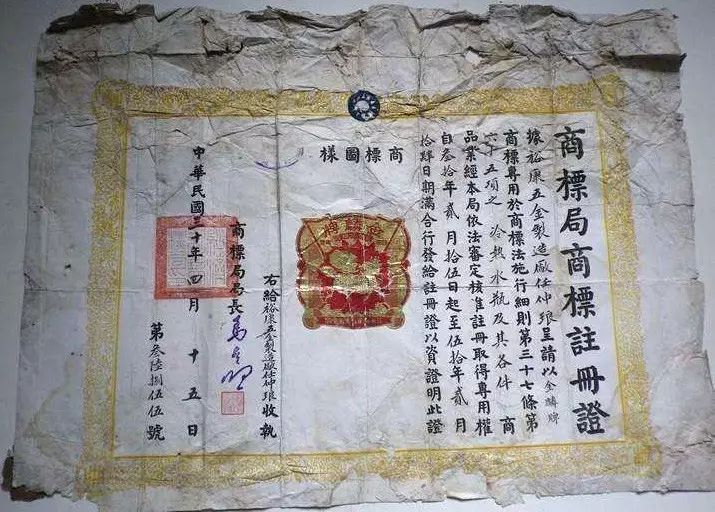 商標局商標註冊證
據裕康五金製造廠任仲琅呈請以金鷄牌
商標專用於商標法施行細則第三十七條第
六十五項之冷熱水瓶及其各件商
品業經本局依法審定核准註冊取得專用權
自叁拾年貳月拾五日起至伍拾年貳月
拾肆日期滿合行發給註冊證以資證明此證
商標圖樣
右給裕康五金製造廠任仲琅收執
商標局局長
中華民國三十年四月十五日
第叁陸捌伍伍號